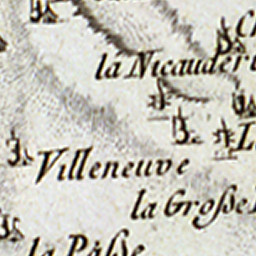 la Nicauderi
Villeneuve
la Große
la Påße